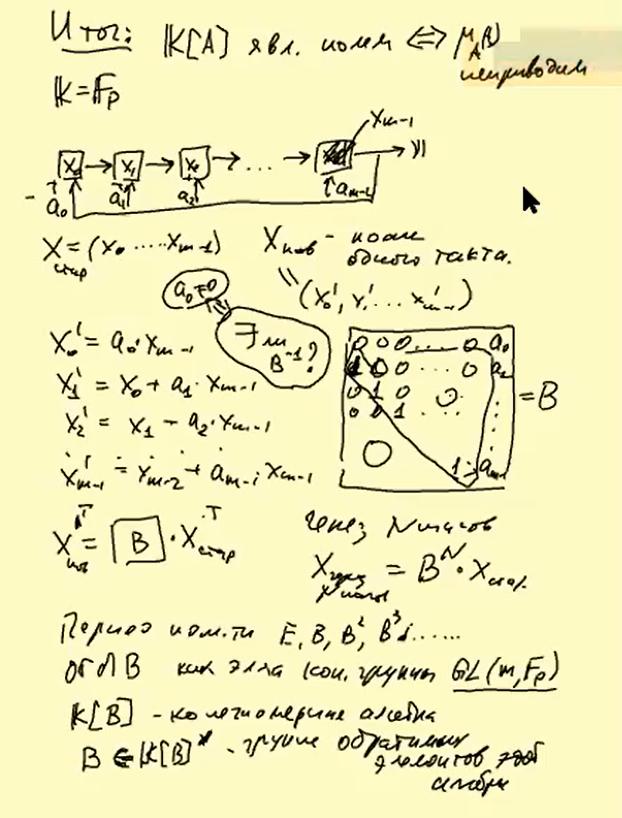 Итог: K[A] явл. полем ⇔ μ_A(λ) неприводим
K = F_p
x_0 → x_1 → x_2 → ... → x_{m-1}
a_0 a_1 a_2 a_{m-1}
X_стар = (x_0 ..... x_{m-1}) X_нов - после одного такта.
(x_0', x_1' ... x_{m-1}')
a_0 ≠ 0
∃ ли B^{-1}?
x_0' = a_0 · x_{m-1}
x_1' = x_0 + a_1 · x_{m-1}
x_2' = x_1 + a_2 · x_{m-1}
x_{m-1}' = x_{m-2} + a_{m-1} x_{m-1}
0 0 0 ... 0 a_0
1 0 0 ... 0 a_1
0 1 0 ... 0
0 0 1 ...
0 1 a_{m-1}
= B
X_нов^T = B · X_стар^T
Через N шагов
X_{через N шагов} = B^N · X_нач.
Период посл-ти E, B, B^2, B^3, ......
ord B как эл-та кон. группы GL(m, F_p)
K[B] - конечномерная алгебра
B ∈ K[B]^* - группе обратимых
элементов этой
алгебры